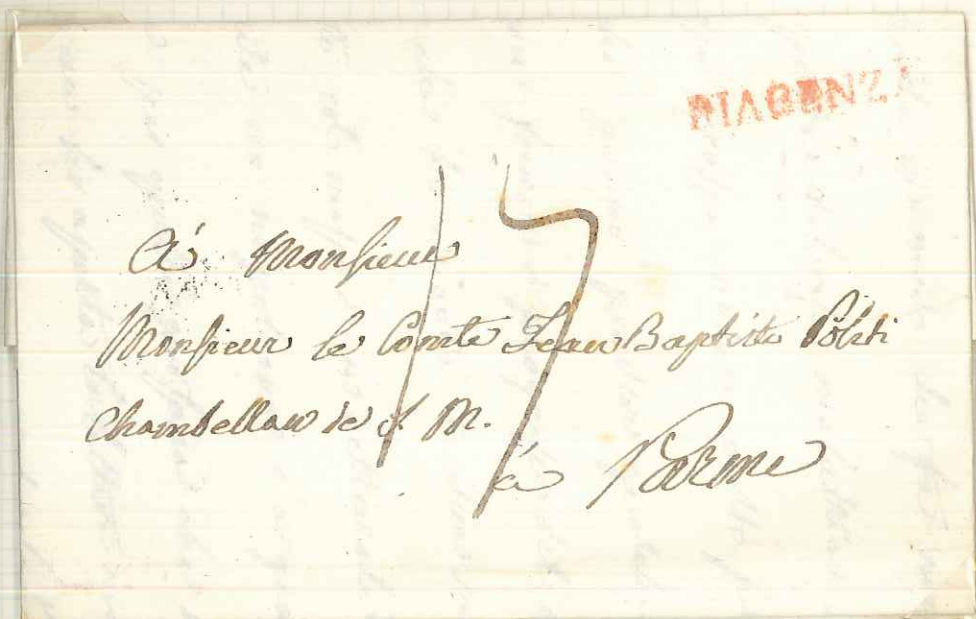 PIACENZA
17
à Monsieur
Monsieur le Comte Jean Baptiste Politi
Chambellan de S. M.
à Parme